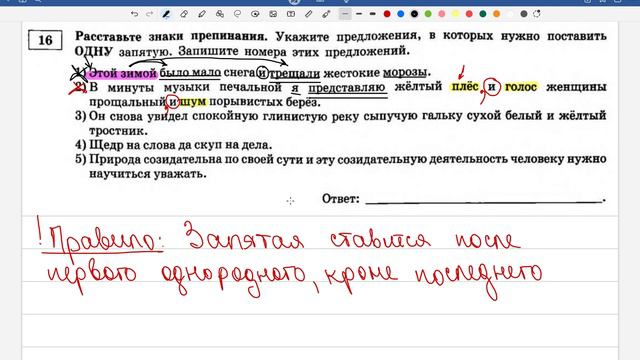 16
Расставьте знаки препинания. Укажите предложения, в которых нужно поставить
ОДНУ запятую. Запишите номера этих предложений.
1) Этой зимой было мало снега и трещали жестокие морозы.
2) В минуты музыки печальной я представляю жёлтый плёс, и голос женщины
прощальный, и шум порывистых берёз.
3) Он снова увидел спокойную глинистую реку сыпучую гальку сухой белый и жёлтый
тростник.
4) Щедр на слова да скуп на дела.
5) Природа созидательна по своей сути и эту созидательную деятельность человеку нужно
научиться уважать.
Ответ:
! Правило: Запятая ставится после
первого однородного, кроме последнего